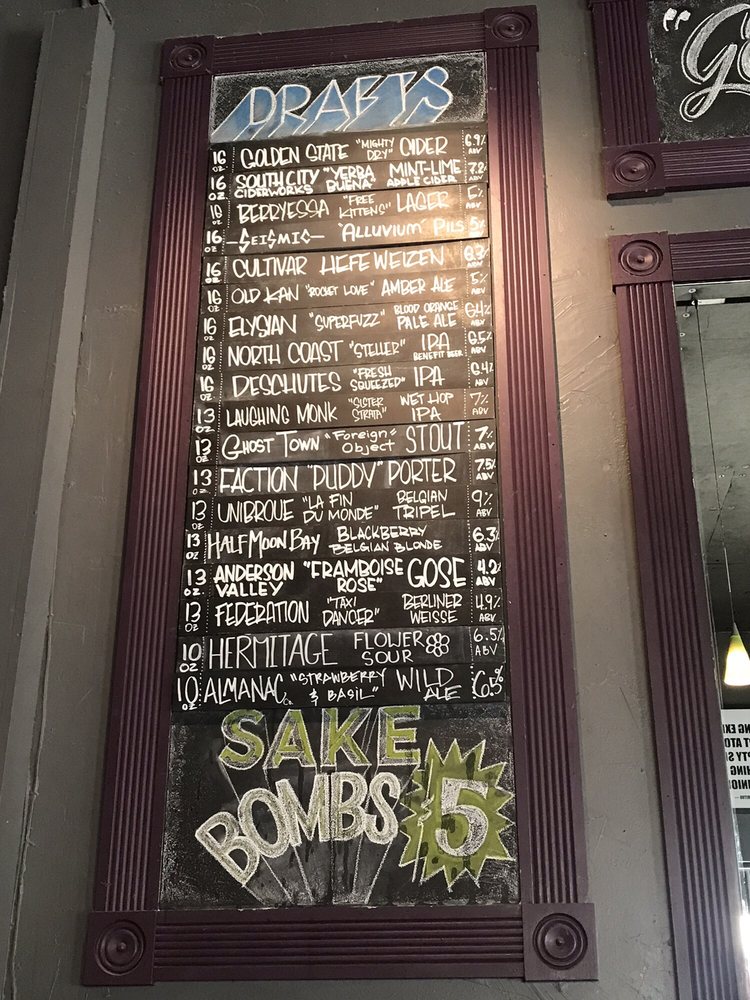 DRAFTS
16 OZ. GOLDEN STATE "MIGHTY DRY" CIDER 6.9% ABV
16 OZ. SOUTH CITY CIDERWORKS "YERBA BUENA" MINT-LIME APPLE CIDER 7.2% ABV
16 OZ. BERRYESSA "FREE KITTENS" LAGER 5% ABV
16 OZ. SEISMIC "ALLUVIUM" PILS 5%
16 OZ. CULTIVAR HEFEWEIZEN ABV
16 OZ. OLD KAN "ROCKET LOVE" AMBER ALE 5% ABV
16 OZ. ELYSIAN "SUPERFUZZ" BLOOD ORANGE PALE ALE 6.4% ABV
16 OZ. NORTH COAST "STELLER" IPA BENEFIT BEER 6.5% ABV
16 OZ. DESCHUTES "FRESH SQUEEZED" IPA 6.4% ABV
13 OZ. LAUGHING MONK "SISTER STRATA" WET HOP IPA 7% ABV
13 OZ. GHOST TOWN "FOREIGN OBJECT" STOUT 7% ABV
13 OZ FACTION "PUDDY" PORTER 7.5% ABV
13 OZ UNIBROUE "LA FIN DU MONDE" BELGIAN TRIPEL 9% ABV
13 OZ HALF MOON BAY BLACKBERRY BELGIAN BLONDE 6.3% ABV
13 OZ ANDERSON VALLEY "FRAMBOISE ROSE" GOSE 4.2% ABV
13 OZ FEDERATION "TAXI DANCER" BERLINER WEISSE 4.9% ABV
10 OZ HERMITAGE FLOWER SOUR 6.5% ABV
10 OZ. ALMANAC Co. "STRAWBERRY & BASIL" WILD ALE 6.5%
SAKE
BOMBS $5